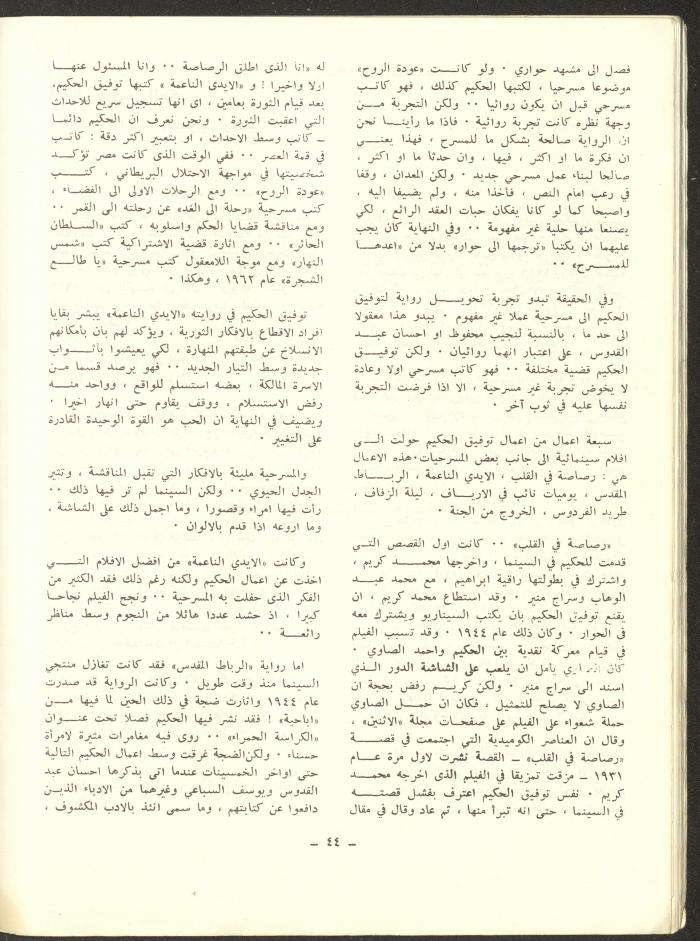 فصل الى مشهد حواري ٠ ولو كانت «عودة الروح»
موضوعا مسرحيا ، لكتبها الحكيم كذلك ، فهو كاتب
مسرحي قبل ان يكون روائيا ٠٠ ولكن التجربة من
وجهة نظره كانت تجربة روائية ٠ فاذا ما رأينا نحن
ان الرواية صالحة بشكل ما للمسرح ، فهذا يعني
ان فكرة ما او اكثر ، فيها ، وان حدثا ما او اكثر ،
صالحا لبناء عمل مسرحي جديد ٠ ولكن المعدان ، وقفا
في رعب امام النص ، فأخذا منه ، ولم يضيفا اليه ،
واصبحا كما لو كانا يفكان حبات العقد الرائع ، لكي
يصنعا منها حلية غير مفهومة ٠٠ وفي النهاية كان يجب
عليهما ان يكتبا «ترجمها الى حوار» بدلا من «اعدهـا
للمسـرح» ٠٠
وفي الحقيقة تبدو تجربة تحويل رواية لتوفيق
الحكيم الى مسرحية عملا غير مفهوم ٠ يبدو هذا معقولا
الى حد ما ، بالنسبة لنجيب محفوظ او احسان عبد
القدوس ، على اعتبار انهما روائيان ٠ ولكن توفيق
الحكيم قضية مختلفة ٠٠ فهو كاتب مسرحي اولا وعادة
لا يخوض تجربة غير مسرحية ، الا اذا فرضت التجربة
نفسها عليه في ثوب آخر ٠
سبعة اعمال من اعمال توفيق الحكيم حولت الى
افلام سينمائية الى جانب بعض المسرحيات٠هذه الاعمال
هي : رصاصة في القلب ، الايدي الناعمة ، الرباط
المقدس ، يوميات نائب في الارياف ، ليلة الزفاف ،
طريد الفردوس ، الخروج من الجنة ٠
«رصاصة في القلب» ٠٠ كانت اول القصص التي
قدمت للحكيم في السينما ، واخرجها محمد كريم ،
واشترك في بطولتها راقية ابراهيم ، مع محمد عبد
الوهاب وسراج منير ٠ وقد استطاع محمد كريم ، ان
يقنع توفيق الحكيم بان يكتب السيناريو ويشترك معه
في الحوار ٠ وكان ذلك عام ١٩٤٤ ٠ وقد تسبب الفيلم
في قيام معركة نقدية بين الحكيم واحمد الصاوي ٠
كان يأمل ان يلعب على الشاشة الدور الذي
اسند الى سراج منير ٠ ولكن كريم رفض بحجة ان
الصاوي لا يصلح للتمثيل ، فكان ان حمل الصاوي
حملة شعواء على الفيلم على صفحات مجلة «الاثنين» ،
وقال ان العناصر الكوميدية التي اجتمعت في قصة
«رصاصة في القلب» ـ القصة نشرت لاول مرة عام
١٩٣١ ـ مزقت تمزيقا في الفيلم الذى اخرجه محمد
كريم ٠ نفس توفيق الحكيم اعترف بفشل قصته
في السينما ، حتى انه تبرأ منها ، ثم عاد وقال في مقال
له «انا الذى اطلق الرصاصة ٠٠ وانا المسئول عنها
اولا واخيرا ! و «الايدى الناعمة » كتبها توفيق الحكيم،
بعد قيام الثورة بعامين ، اى انها تسجيل سريع للاحداث
التي اعقبت الثورة ٠ ونحن نعرف ان الحكيم دائما
ـ كاتب وسط الاحداث ، او بتعبير اكثر دقة : كاتب
في قمة العصر ٠٠ ففي الوقت الذى كانت مصر تؤكد
شخصيتها في مواجهة الاحتلال البريطاني ، كتب
«عودة الروح» ٠٠ ومع الرحلات الاولى الى الفضاء ،
كتب مسرحية «رحلة الى الغد» عن رحلته الى القمر ٠٠
ومع مناقشة قضايا الحكم واسلوبه ، كتب «السلطان
الحائر» ٠٠ ومع اثارة قضية الاشتراكية كتب «شمس
النهار» ومع موجة اللامعقول كتب مسرحية «يا طالع
الشجرة» عام ١٩٦٢ ، وهكذا ٠
توفيق الحكيم في روايته «الايدي الناعمة» يبشر بقايا
افراد الاقطاع بالافكار الثورية ، ويؤكد لهم بان بأمكانهم
الانسلاخ عن طبقتهم المنهارة ، لكي يعيشوا بأثواب
جديدة وسط التيار الجديد ٠٠ فهو يرصد قسما من
الاسرة المالكة ، بعضه استسلم للواقع ، وواحد منه
رفض الاستسلام ، ووقف يقاوم حتى انهار اخيرا ٠
ويضيف في النهاية ان الحب هو القوة الوحيدة القادرة
على التغيير ٠
والمسرحية مليئة بالافكار التي تقبل المناقشة ، وتثير
الجدل الحيوي ٠٠ ولكن السينما لم تر فيها ذلك ٠٠
رأت فيها امراء وقصورا ، وما اجمل ذلك على الشاشة ،
وما اروعه اذا قدم بالالوان ٠
وكانت «الايدي الناعمة» من افضل الافلام التي
اخذت عن اعمال الحكيم ولكنه رغم ذلك فقد الكثير من
الفكر الذى حفلت به المسرحية ٠٠ ونجح الفيلم نجاحا
كبيرا ، اذ حشد عددا هائلا من النجوم وسط مناظر
رائعة ٠٠
اما رواية «الرباط المقدس» فقد كانت تغازل منتجي
السينما منذ وقت طويل ٠ وكانت الرواية قد صدرت
عام ١٩٤٤ واثارت ضجة في ذلك الحين لما فيها من
«اباحية» ! فقد نشر فيها الحكيم فصلا تحت عنوان
«الكراسة الحمراء» ٠٠ روى فيه مغامرات مثيرة لامرأة
حسناء ٠ ولكن الضجة غرقت وسط اعمال الحكيم التالية
حتى اواخر الخمسينات عندما اتى بذكرها احسان عبد
القدوس ويوسف السباعي وغيرهما من الادباء الذين
دافعوا عن كتابتهم ، وما سمى انئذ بالادب المكشوف ،
ـ ٤٤ ـ